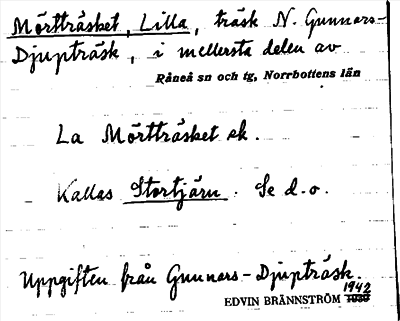 Mörtträsket, Lilla, träsk N. Gunnars-
Djupträsk, i mellersta delen av
Råneå sn och tg, Norrbottens län
La Mörtträsket ek.
Kallas Stortjärn. Se d.o.
Uppgiften från Gunnars-Djupträsk.
1942
EDVIN BRÄNNSTRÖM 1939